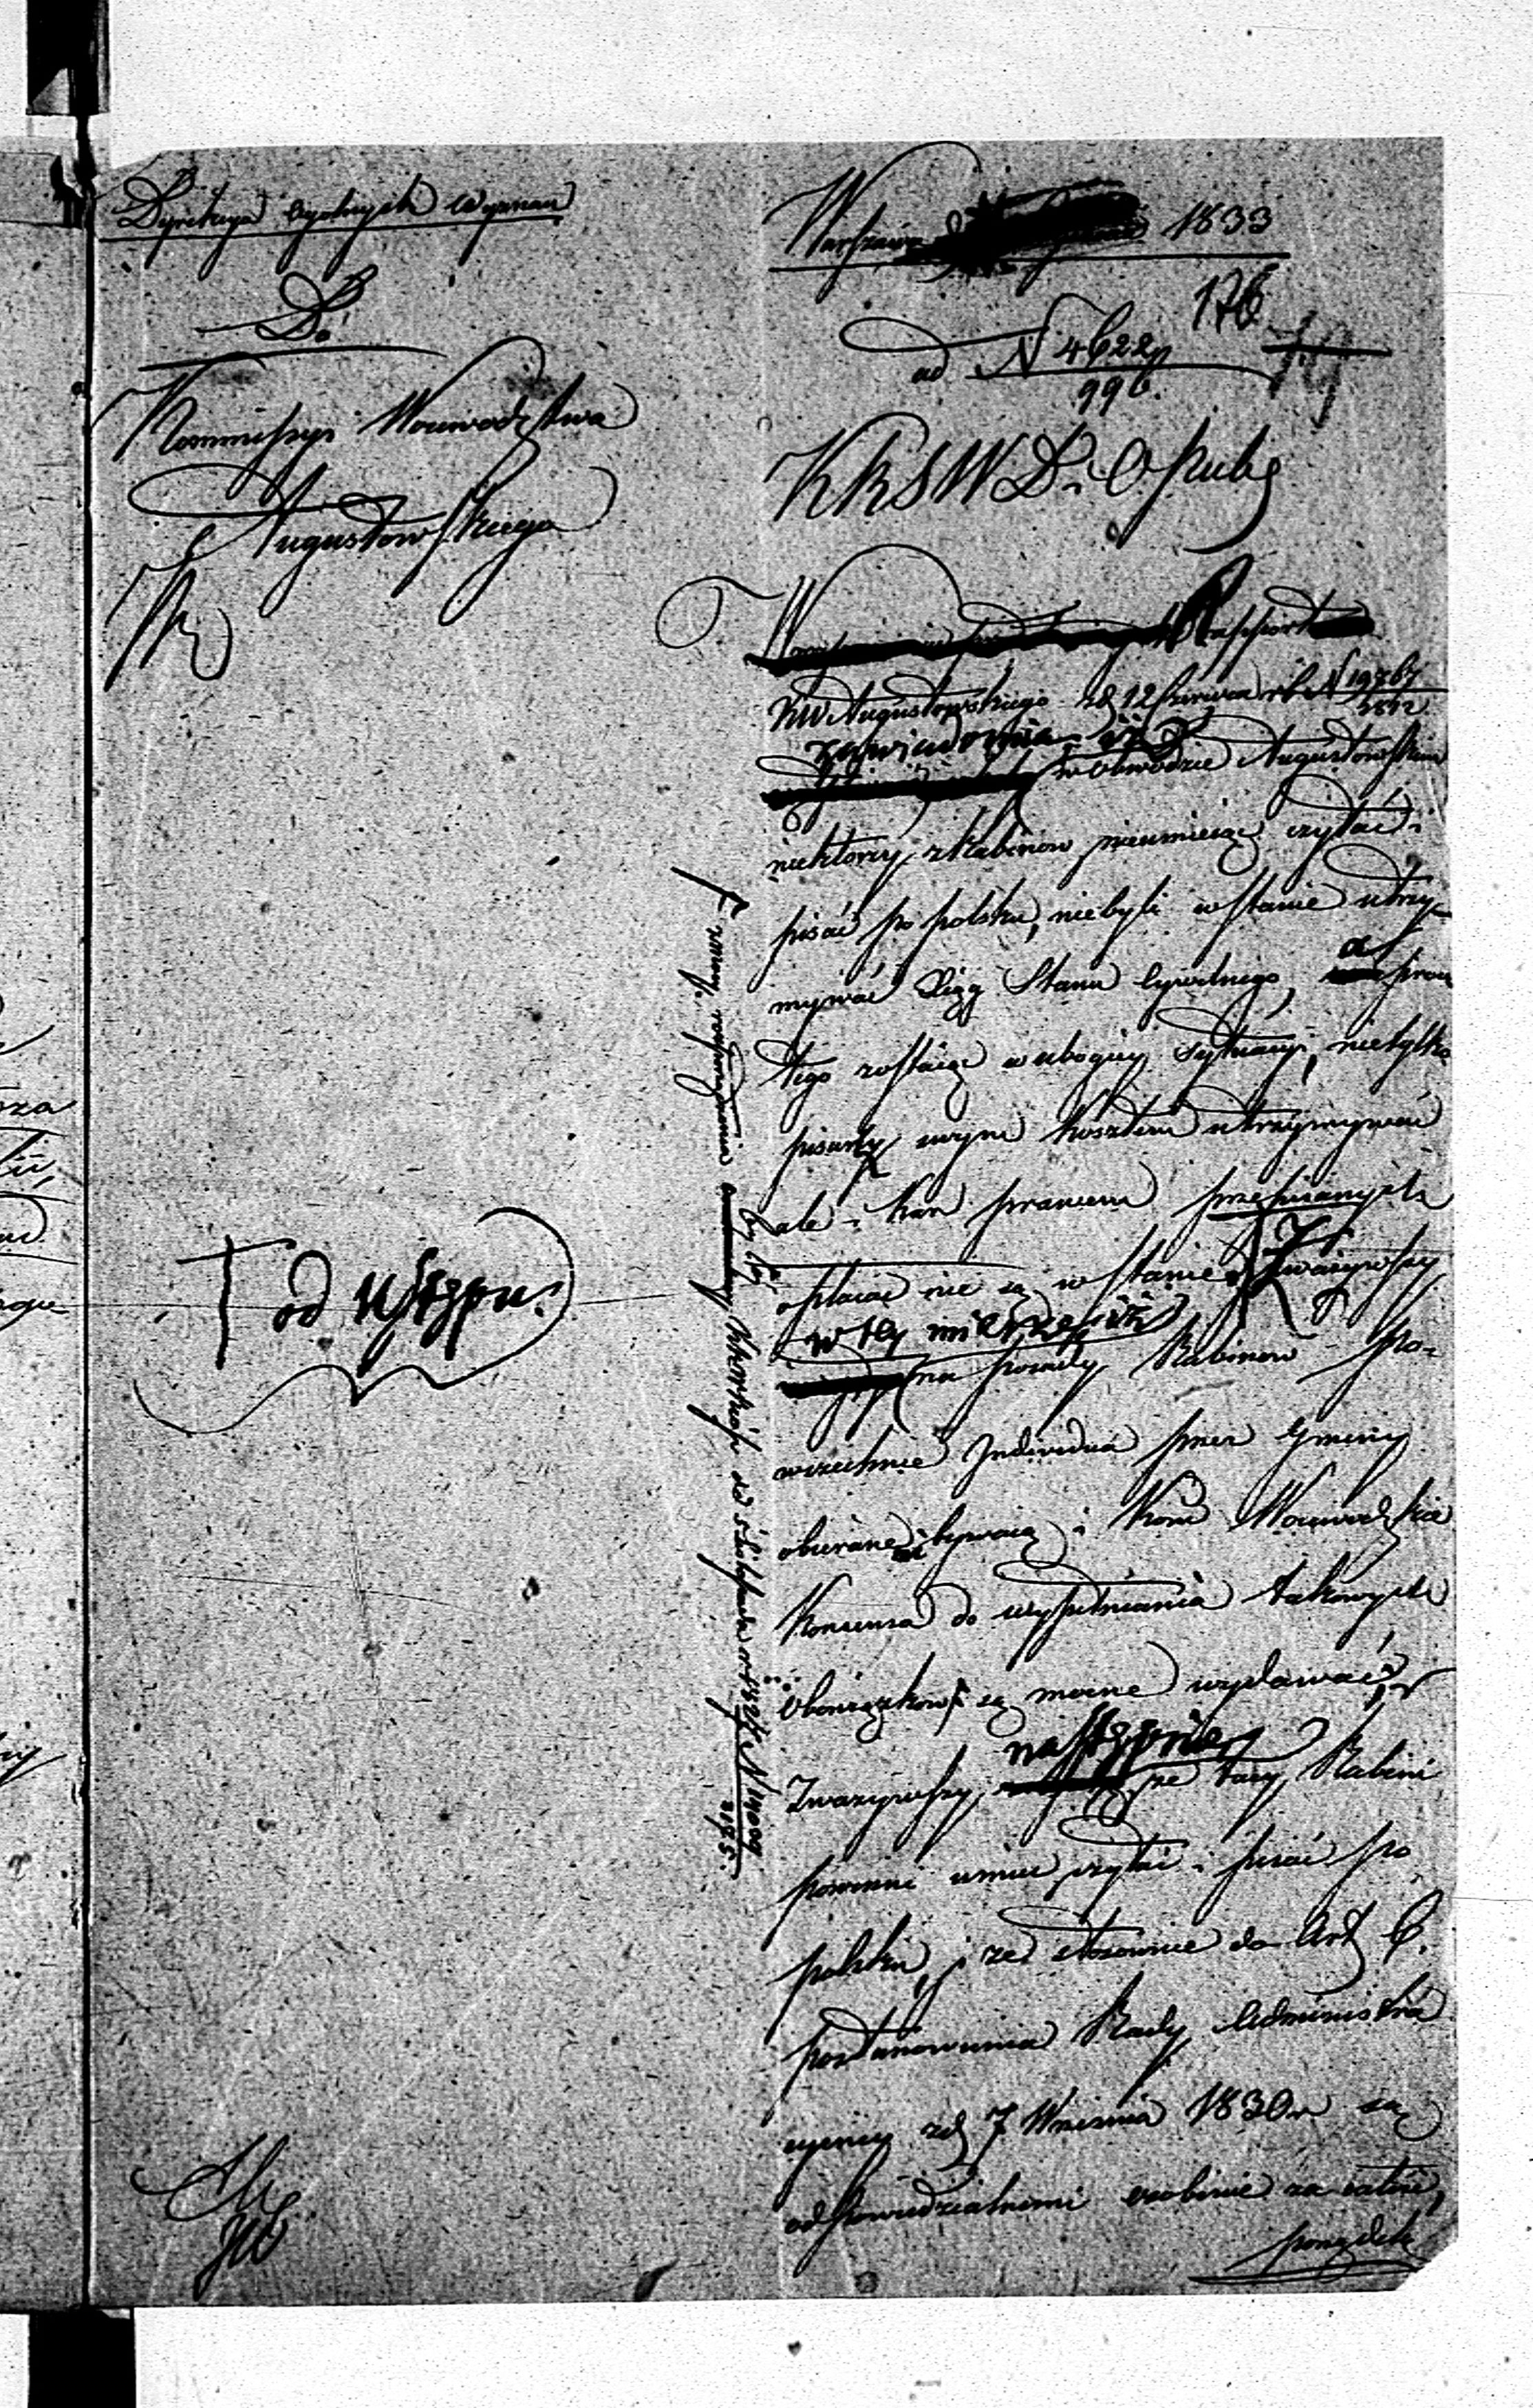 Dyrekcya Ogolnych Wyznań
Do
Kommissyi Wojewodztwa
Augustowskiego
Warszawa 1833
176
ad N 4622
996.
KRSWD i O publ
Rapport
KW Augustowskiego zd 12 Czerwca rb N 19767
zawiadomia iż
w Obwodzie Augustowskim
niektorzy z Rabinow nieumiejąc czytać i
pisać po polsku, niebyli w stanie utrzy-
mywać Xiąg Stanu Cywilnego, a procz
tego zostaiąc w ubogiey sytuacyi, nietylko
pisarzy swym kosztem utrzymywać
ale i kar prawem przepisanych
opłacać nie są w stanie. Zważywszy
w tey mierze iż
na posady Rabinow po-
wszechnie Individua przez Gminy
obierane bywaią i Kom Woiewodzkie
Konsensa do wypełniania takowych
Obowiązkow są mocne wydawać,
następnie
Zważywszy że tacy Rabini
powinni umieć czytać i pisać po
polsku, i że stosownie do Art 6.
postanowienia Rady Administra
cyiney zd 7 Września 1830 r są
odpowiedzialnemi osobiście za całość,
porządek
z mocy rozporządzenia
do N 19009
od Ustępu.